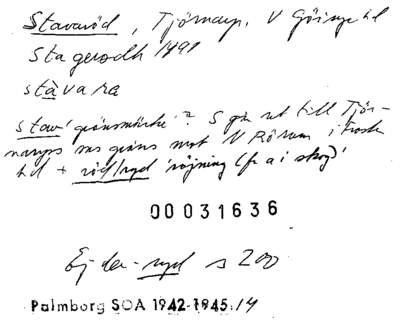 Stavaröd, Tjörnarp, V Göinge hd
Stagerodh 1491
stàvara
stav 'gränsmärke'? S går ut till Tjör-
narps sns gräns mot N Rörum i Frosta
hd + röd/ryd 'röjning (fr a i skog)'
00031636
Ej den -ryd s 200
Palmborg SOA 1942-1945:/4